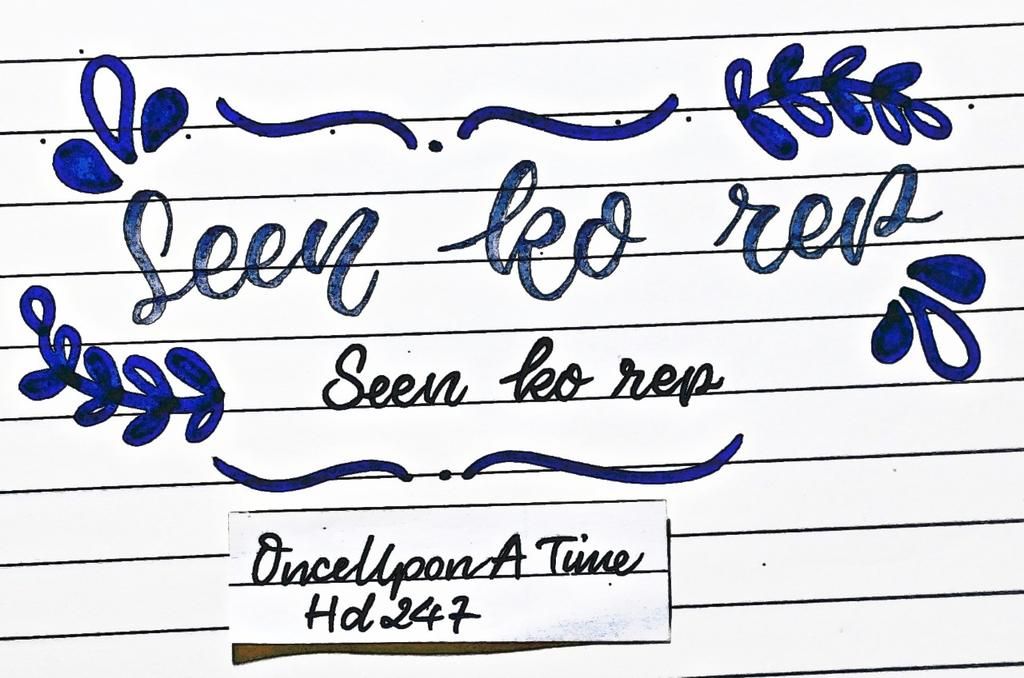 Seen ko rep
Seen ko rep
OnceUpon A Time
Hd 247